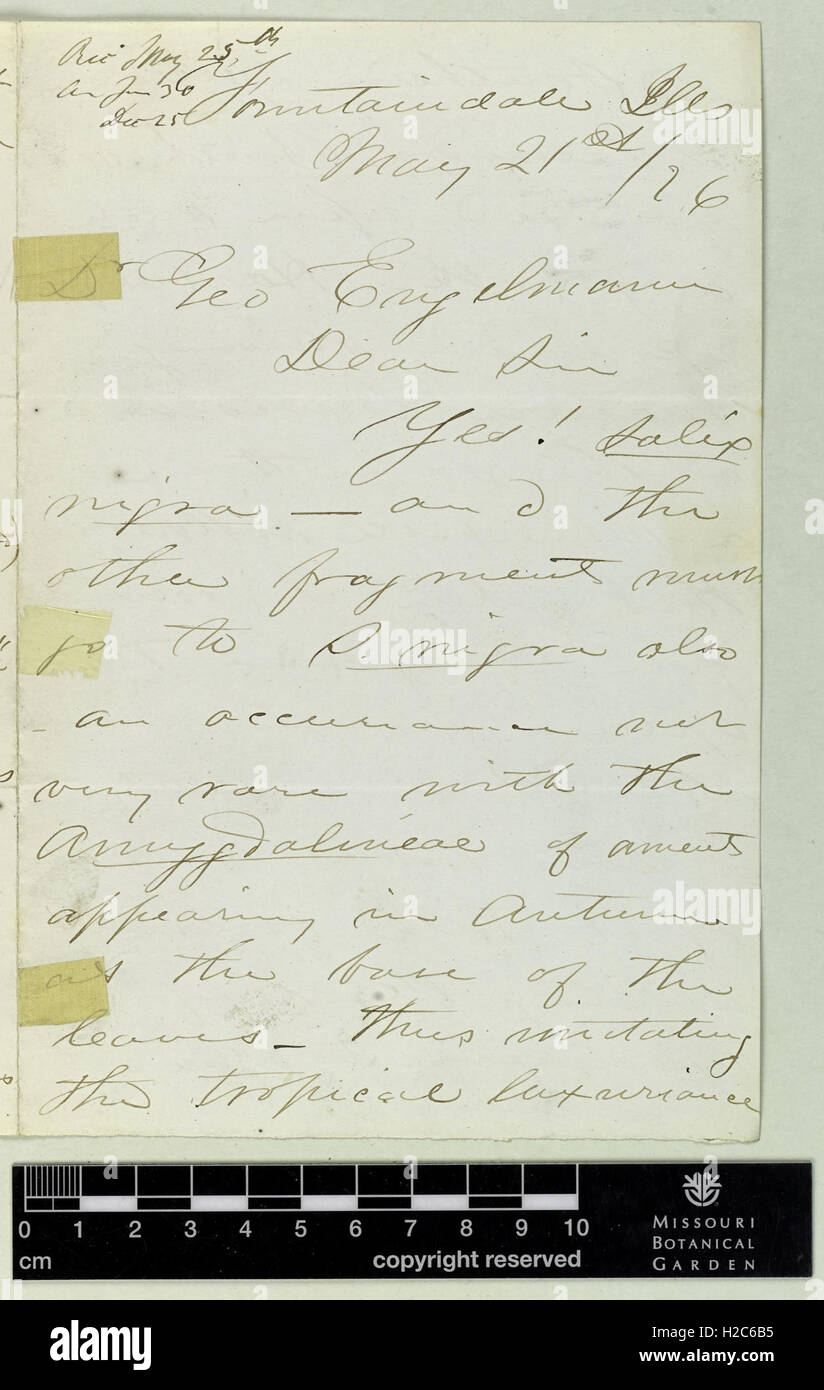 Rec May 25th
An Jun 30
Dec 25
Fountaindale Ills
May 21st/76
Dr Geo Engelmann
Dear Sir
Yes! Salix
nigra — and the
other fragment must
go to S. nigra also
- an occurrance not
very rare with the
Amygdalineae of aments
appearing in Autumn
at the base of the
leaves – thus imitating
the tropical luxuriance
0 1 2 3 4 5 6 7 8 9 10
cm copyright reserved
MISSOURI
BOTANICAL
GARDEN
alamy
alamy stock photo
H2C6B5
www.alamy.com